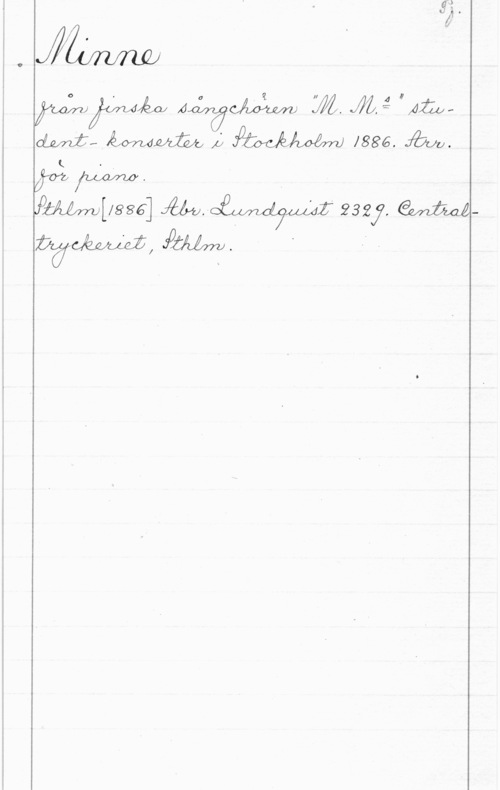 Pj.
Minne
från finska sångchören "M. M.s" stu-
dent-konserter i Stockholm 1886. Arr.
för piano.
Sthlm [1886] Abr. Lundquist 2329. Central-
tryckeriet, Sthlm.